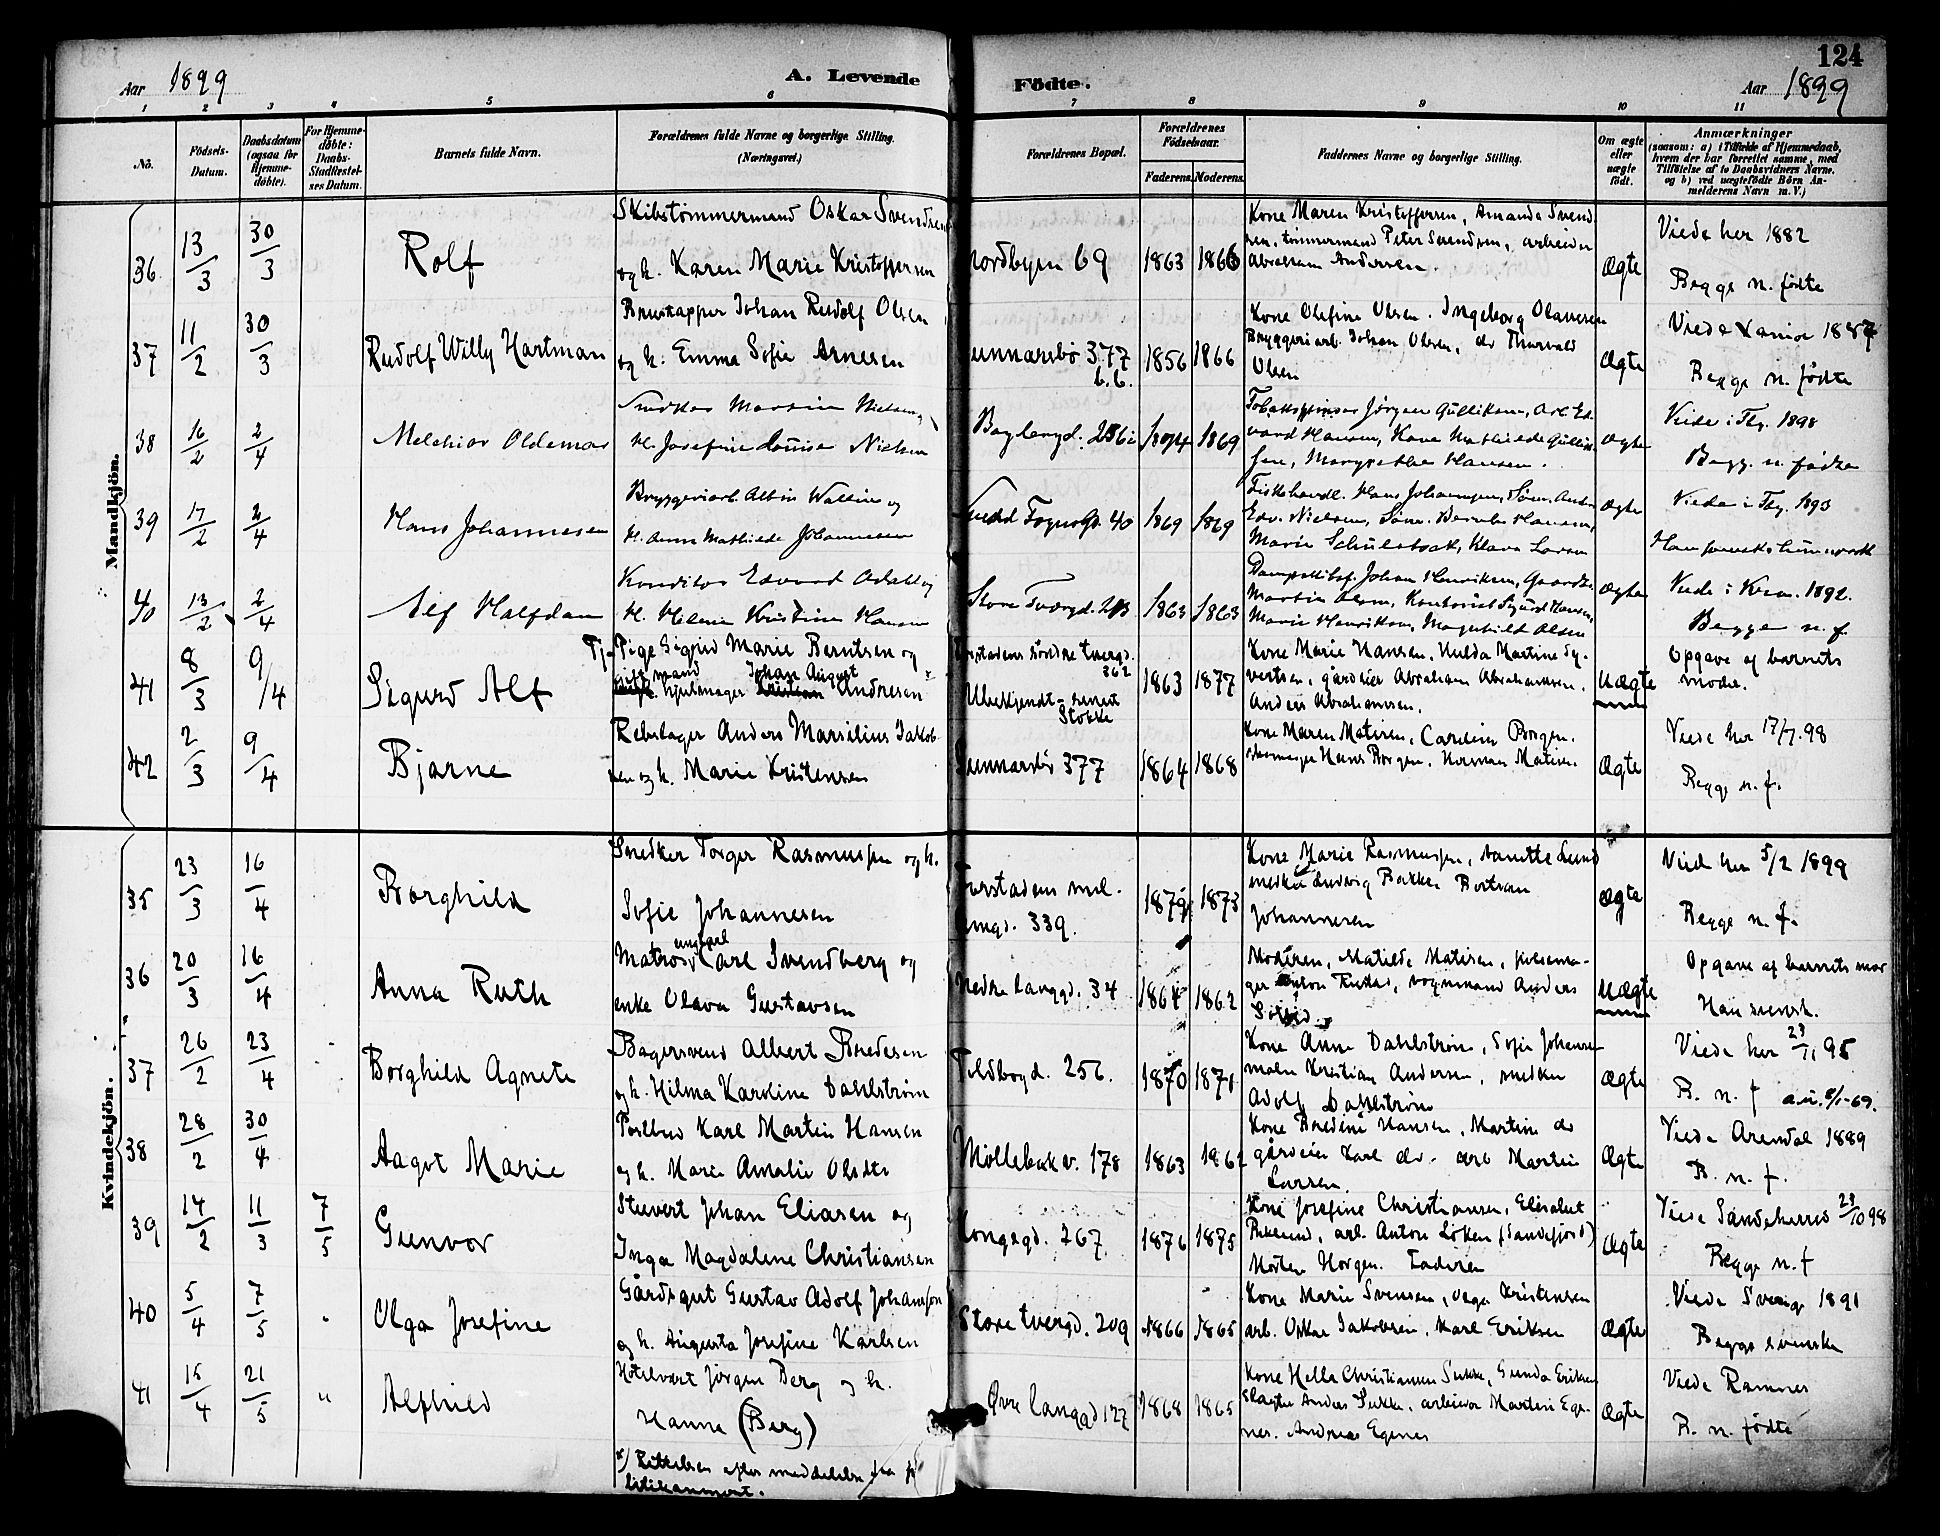 124
Aar 1899
A. Levende
Födte.
Aar 1899
1 2 3 4 5 6 7 8 9 10 11
No.
Födsels-Datum.
Daabsdatum (ogsaa for Hjemme-döbte).
For Hjemme-döbte: Daabs-Stadfæstel-ses Datum.
Barnets fulde Navn.
Forældrenes fulde Navne og borgerlige Stilling. (Næringsvei.)
Forældrenes Bopæl.
Forældrenes Födselsaar.
Faderens. Moderens.
Faddernes Navne og borgerlige Stilling.
Om ægte eller uægte födt.
Anmærkninger
(saasom: a) i Tilfælde af Hjemmedaab, hvem der har forrettet samme, med Tilföielse af to Daabsvidners Navne, og b) ved uægtefödte Börn An-melderens Navn m. V.)
Mandkjön.
36 13/3 30/3 Rolf
Skibstømmermand Oskar Svendsen
og h. Karen Marie Kristoffersen
Nordbyen 69 1863 1866
Kone Maren Kristoffersen, Amanda Svend-
sen, tømmermand Peter Svendsen, arbeider
Abraham Andersen.
Ægte
Viede her 1882
Begge n. fødte
37 11/2 30/3 Rudolf Willy Hartman
Brustapper Johan Rudolf Olsen
og h. Emma Sofie Arnesen
Gunnarsbø 377
b.b.
1856 1866
Kone Olefine Olsen. Ingeborg Olavesen
Bryggeriarb. Johan Olsen, do Thorvald
Olsen
Ægte
Viede 1887
Begge n. fødte
38 16/2 2/4 Melchior Oldemar
Snedker Martin Nielsen
H. Josefine Louise Nielsen
Baglergd. 256 1874 1869
Jørgen Gulliksen, Arb. Ed-
vard Hansen, Kone Mathilde Gullik-
sen, Margrethe Hansen.
ægte
Viede i Tbg. 1898
Begg. n. fødte
39 17/2 2/4 Hans Johannesen
Bryggeriarb. Albin Wallin og
H. Anna Mathilde Johannesen
40 1869 1869
Fiskehandl. Hans Johannesen, Søm. Anton
Edv. Nielsen, Søm. Hansen,
Marie Klara Larsen
ægte
Viede i Tbg. 1893
40 13/2 2/4 Alf Halfdan
Konditor Edvard
H. Helene Kristine Hansen
Store Tvergd. 213 1863 1863
Johan Henriksen, Gaard
Martin Olsen, Kontorist Sigurd Hansen,
Marie Henriksen, Magnhild Olsen
ægte
Viede i Kra. 1892.
Begge n. f.
41 8/3 9/4 Sigurd Alf
Tj. Pige Sigrid Marie Berntsen og
gift mand Johan August
hjulmager Kristian Andresen x
Farstadens søndre tvergd.
362
Ubekjendt – senest
Stokke
1863 1877
Kone Marie Hansen, Hulda Martine Sy-
vertsen, gårdeier Abraham Abrahamsen,
Anders Abrahamsen.
Uægte
Opgave af barnets
moder.
42 2/3 9/4 Bjarne
Rebslager Anders Marsilius Jakob-
sen og h. Marie Kristensen
Gunnarsbø 377 1864 1868
Kone Maren Matisen, Caroline Borgen.
Hans Borgen, Herman Matisen.
Ægte
Viede her 17/7.98
Begge n. f.
Kvindekjön.
35 23/3 16/4 Borghild
Snedker Torger Rasmussen og h.
Sofie Johannesen
Farstadens mel.
langd. 339.
1879 1873
Kone Marie Rasmussen, Nanette Lund
snedker Ludvig Bakken Bertran
Johannesen
Ægte
Vied her 5/2 1899
Begge n. f.
36 20/3 16/4 Anna Ruth
ungkarl
Matros Carl Svendberg og
enke Olava Gustavsen
Nedre Langgd. 34 1864 1862
Moderen, Matilde Matisen, pølsema-
ger Anton vognmand Anders
Uægte
Opgave af barnets mor
Han svensk.
37 26/2 23/4 Borghild Agnete
Bagersvend Albert Bredesen
og h. Hilma Karoline Dahlstrøm
Tildbogd. 256. 1870 1871
Kone Anne Dahlstrøm, Sofie Johansen
maler Kristian Andersen, snedker
Adolf Dahlstrøm
Ægte
Viede her 23/11 95
B. n. f
38 28/2 30/4 Aagot Marie
Postbud Karl Martin Hansen
og h. Marie Amalie Olsdtr
Møllebakv. 178 1863 1862
Kone Bredine Hansen, Martine do
gårdeier Karl do. arb Martin
Larsen
Ægte
Viede Arendal 1889
B. n. f.
39 14/2 11/3 7/5 Gunvor
Stuvert Johan Eliasen og
Inga Magdalene Christiansen
Kongegd. 267 1876 1875
Kone Josefine Christiansen, Elisabet
arb. Anton Løken (Sandefjord)
Morten Horgen. Faderen
Ægte
Viede Sandeherred 23/10 98
Begge n. f
40 5/4 7/5 " Olga Josefine
Gårdsgut Gustav Adolf Johansson
og h. Augusta Josefine Karlsen
Store tvergd. 209 1866 1865
Kone Marie Svensen, Olga Kristensen
arb. Oskar Jakobsen, Karl Eriksen
Ægte
Viede Sverige 1891
Begge svenske
41 15/4 21/5 " Alfhild
Hotelvert Jörgen Berg og h.
Hanne (Berg)
Øvre Langgd 127 1868 1865
Kone Helle Christiansen Sukke, Gunda Eriksen
Slagter Anders Sukke, arbeider Martin Ege-
nes. Andreas Egenes
Ægte
Viede Ramnes
B. n. fødte
x) Rettelsen efter meddelelse fra po-
litikammeret.